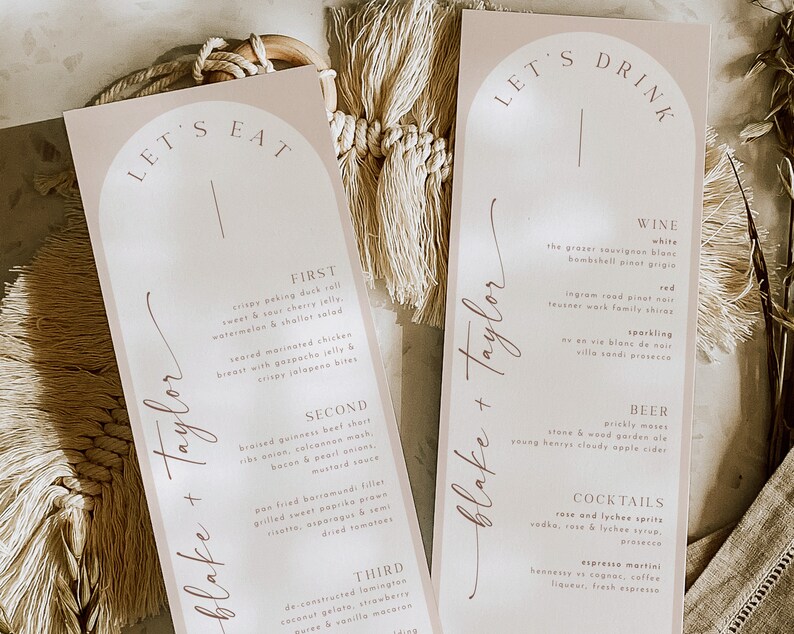 LET'S EAT
blake + taylor
FIRST
crispy peking duck roll
sweet & sour cherry jelly,
watermelon & shallot salad
seared marinated chicken
breast with gazpacho jelly &
crispy jalapeno bites
SECOND
braised guinness beef short
ribs onion, colcannon mash,
bacon & pearl onions,
mustard sauce
pan fried barramundi fillet
grilled sweet paprika prawn
risotto, asparagus & semi
dried tomatoes
THIRD
de-constructed lamington
coconut gelato, strawberry
puree & vanilla macaron
LET'S DRINK
blake + taylor
WINE
white
the grazer sauvignon blanc
bombshell pinot grigio
red
ingram road pinot noir
teusner work family shiraz
sparkling
nv en vie blanc de noir
villa sandi prosecco
BEER
prickly moses
stone & wood garden ale
young henrys cloudy apple cider
COCKTAILS
rose and lychee spritz
vodka, rose & lychee syrup,
prosecco
espresso martini
hennessy vs cognac, coffee
liqueur, fresh espresso